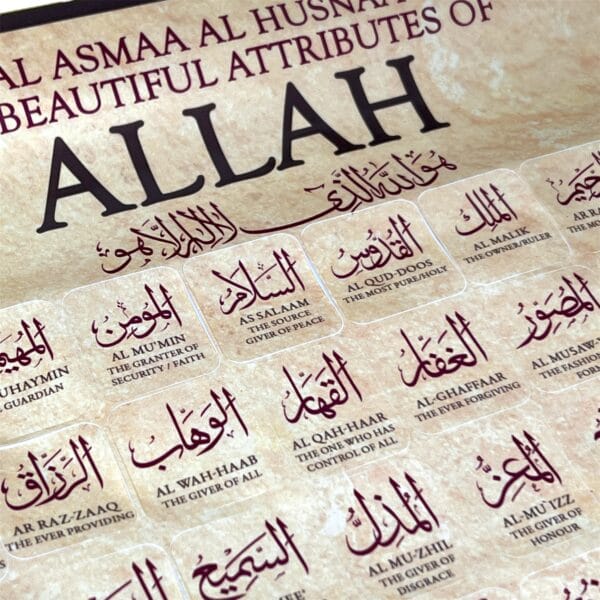 AL ASMAA AL HUSNAA
BEAUTIFUL ATTRIBUTES OF
ALLAH
هو الله الذي لا إله إلا هو
الملك
AL MALIK
THE OWNER/RULER
القدوس
AL QUD-DOOS
THE MOST PURE/HOLY
السلام
AS SALAAM
THE SOURCE
GIVER OF PEACE
المؤمن
AL MU'MIN
THE GRANTER OF
SECURITY / FAITH
المهيمن
UHAYMIN
GUARDIAN
المصور
AL MUSAW-
THE FASHION
FOR
الغفار
AL-GHAFFAAR
THE EVER FORGIVING
القهار
AL QAH-HAAR
THE ONE WHO HAS
CONTROL OF ALL
الوهاب
AL WAH-HAAB
THE GIVER OF ALL
الرزاق
AR RAZ-ZAAQ
THE EVER PROVIDING
المعز
AL-MU'IZZ
THE GIVER OF
HONOUR
المذل
AL MU-ZHIL
THE GIVER OF
DISGRACE
السميع